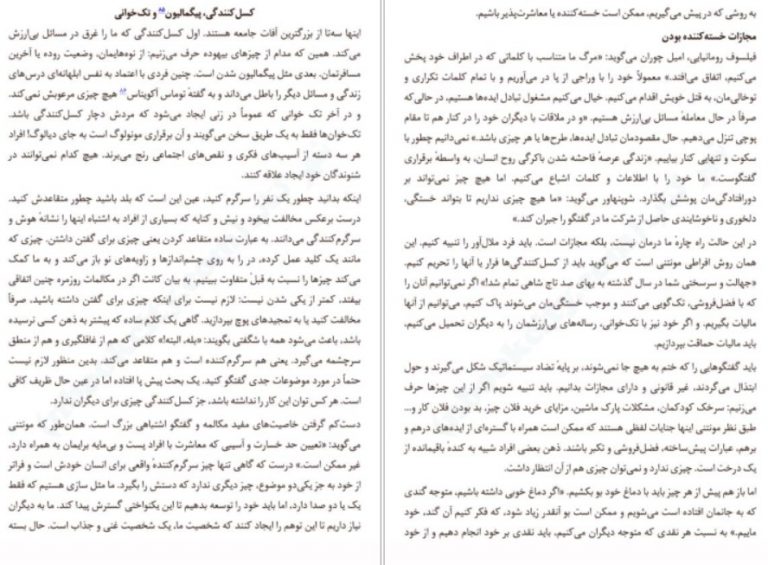 کسل‌کنندگی، پیگمالیون۸۵ و تک‌خوانی
اینها سه‌تا از بزرگترین آفات جامعه هستند. اول کسل‌کنندگی که ما را غرق در مسائل بی‌ارزش
می‌کند. همین که مدام از چیزهای بیهوده حرف می‌زنیم: از نوه‌هایمان، وضعیت روده یا آخرین
مسافرتمان. بعدی مثل پیگمالیون شدن است. چنین فردی با اعتماد به نفس ابلهانه‌ای درس‌های
زندگی و مسائل دیگر را باطل می‌داند و به گفتهٔ توماس آکویناس۸۶ هیچ چیزی مرعوبش نمی‌کند.
و در آخر تک خوانی که عموماً در زنی ایجاد می‌شود که مردش دچار کسل‌کنندگی باشد.
تک‌خوان‌ها فقط به یک طریق سخن می‌گویند و آن برقراری مونولوگ است به جای دیالوگ! افراد
هر سه دسته از آسیب‌های فکری و نقص‌های اجتماعی رنج می‌برند. هیچ کدام نمی‌توانند در
شنوندگان خود ایجاد علاقه کنند.
اینکه بدانید چطور یک نفر را سرگرم کنید، عین این است که بلد باشید چطور متقاعدش کنید.
درست برعکس مخالفت بیخود و نیش و کنایه که بسیاری از افراد به اشتباه اینها را نشانهٔ هوش و
سرگرم‌کنندگی می‌دانند. به عبارت ساده متقاعد کردن یعنی چیزی برای گفتن داشتن. چیزی که
مانند یک کلید عمل کرده، در را به روی چشم‌اندازها و زاویه‌های نو باز می‌کند و به ما کمک
می‌کند چیزها را نسبت به قبل متفاوت ببینیم. به بیان کانت اگر در مکالمات روزمره چنین اتفاقی
بیفتد، کمتر از یکی شدن نیست: لازم نیست برای اینکه چیزی برای گفتن داشته باشید، صرفاً
مخالفت کنید یا به تمجیدهای پوچ بپردازید. گاهی یک کلام ساده که پیشتر به ذهن کسی نرسیده
باشد، باعث می‌شود همه با شگفتی بگویند: «بله، البته!» کلامی که هم از غافلگیری و هم از منطق
سرچشمه می‌گیرد. یعنی هم سرگرم‌کننده است و هم متقاعد می‌کند. بدین منظور لازم نیست
حتماً در مورد موضوعات جدی گفتگو کنید. یک بحث پیش پا افتاده اما در عین حال ظریف کافی
است. هر کس توان این کار را نداشته باشد، جز کسل‌کنندگی چیزی برای دیگران ندارد.
دست‌کم گرفتن خاصیت‌های مفید مکالمه و گفتگو اشتباهی بزرگ است. همان‌طور که مونتنی
می‌گوید: «تعیین حد خسارت و آسیبی که معاشرت با افراد پست و بی‌مایه برایمان به همراه دارد،
غیر ممکن است.» درست که گاهی تنها چیز سرگرم‌کنندهٔ واقعی برای انسان خودش است و فراتر
از خود به جز یکی‌دو موضوع، چیز دیگری ندارد که دستش را بگیرد. ما مثل سازی هستیم که فقط
یک یا دو صدا دارد، اما باید خود را توسعه بدهیم تا این یکنواختی گسترش پیدا کند. ما به دیگران
نیاز داریم تا این توهم را ایجاد کنند که شخصیت ما، یک شخصیت غنی و جذاب است. حال بسته
به روشی که در پیش می‌گیریم، ممکن است خسته‌کننده یا معاشرت‌پذیر باشیم.
مجازات خسته‌کننده بودن
فیلسوف رومانیایی، امیل چوران می‌گوید: «مرگ ما متناسب با کلماتی که در اطراف خود پخش
می‌کنیم، اتفاق می‌افتد.» معمولاً خود را با وراجی از پا در می‌آوریم و با تمام کلمات تکراری و
توخالی‌مان، به قتل خویش اقدام می‌کنیم. خیال می‌کنیم مشغول تبادل ایده‌ها هستیم، در حالی‌که
صرفاً در حال معاملهٔ مسائل بی‌ارزش هستیم. «و در ملاقات با دیگران خود را در کنار هم تا مقام
پوچی تنزل می‌دهیم. حال مقصودمان تبادل ایده‌ها، طرح‌ها یا هر چیزی باشد.» نمی‌دانیم چطور با
سکوت و تنهایی کنار بیاییم. «زندگی عرصهٔ فاحشه شدن باکرگی روح انسان، به واسطهٔ برقراری
گفتگوست.» ما خود را با اطلاعات و کلمات اشباع می‌کنیم. اما هیچ چیز نمی‌تواند بر
دورافتادگی‌مان پوشش بگذارد. شوپنهاور می‌گوید: «ما هیچ چیزی نداریم تا بتواند خستگی،
دلخوری و ناخوشایندی حاصل از شرکت ما در گفتگو را جبران کند.»
در این حالت راه چارهٔ ما درمان نیست، بلکه مجازات است. باید فرد ملال‌آور را تنبیه کنیم. این
همان روش افراطی مونتنی است که می‌گوید باید از کسل‌کننده‌ها فرار یا آنها را تحریم کنیم.
«جهالت و سرسختی شما در سال گذشته به بهای صد تاج شاهی تمام شد!» اگر نمی‌توانیم آنان را
که با فضل‌فروشی، تک‌گویی می‌کنند و موجب خستگی‌مان می‌شوند پاک کنیم، می‌توانیم از آنها
مالیات بگیریم. و اگر خود نیز با تک‌خوانی، رساله‌های بی‌ارزشمان را به دیگران تحمیل می‌کنیم،
باید مالیات حماقت بپردازیم.
باید گفتگوهایی را که ختم به هیچ جا نمی‌شوند، بر پایهٔ تضاد سیستماتیک شکل می‌گیرند و حول
ابتذال می‌گردند، غیر قانونی و دارای مجازات بدانیم. باید تنبیه شویم اگر از این چیزها حرف
می‌زنیم: سرخک کودکمان، مشکلات پارک ماشین، مزایای خرید فلان چیز، بد بودن فلان کار و...
طبق نظر مونتنی اینها جنایات لفظی هستند که ممکن است همراه با گستره‌ای از ایده‌های درهم و
برهم، عبارات پیش‌ساخته، فضل‌فروشی و تکبر باشند. ذهن بعضی افراد شبیه به کندهٔ باقیمانده از
یک درخت است. چیزی ندارد و نمی‌توان چیزی هم از آن انتظار داشت.
اما باز هم پیش از هر چیز باید با دماغ خود بو بکشیم. «اگر دماغ خوبی داشته باشیم، متوجه گندی
که به جانمان افتاده است می‌شویم و ممکن است بو آنقدر زیاد شود، که فکر کنیم آن گند، خود
ماییم.» به نسبت هر نقدی که متوجه دیگران می‌کنیم، باید نقدی بر خود انجام دهیم و از خود